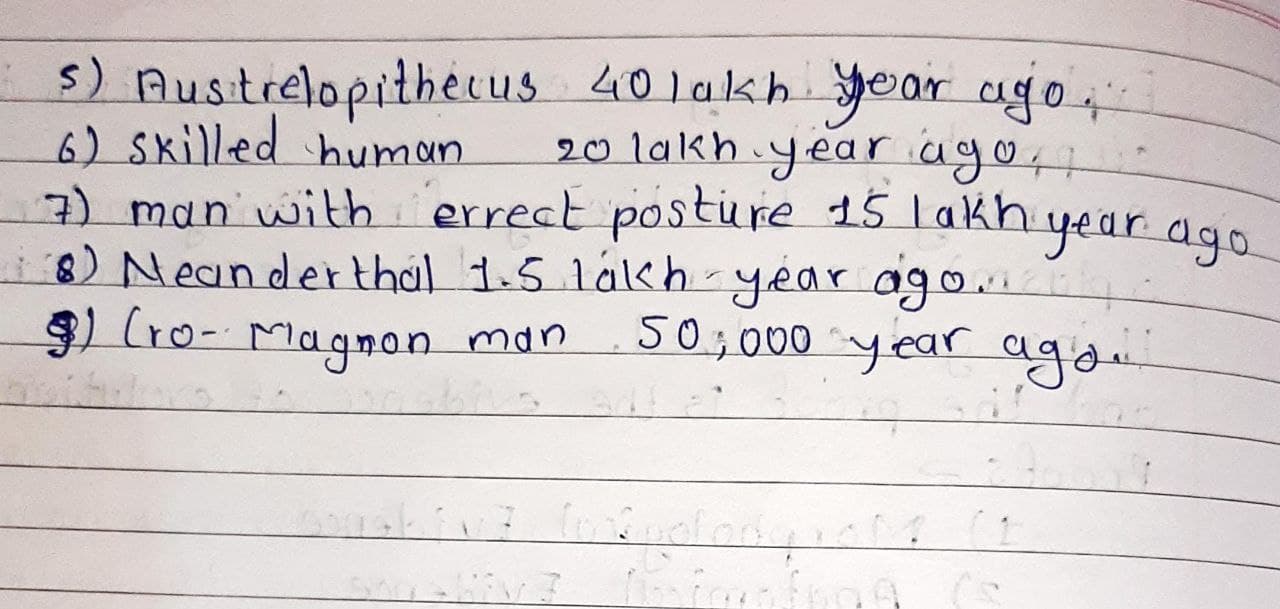 5) Austrelopithecus 40 lakh year ago.
6) skilled human 20 lakh year ago.
7) man with errect posture 15 lakh year ago
8) Neanderthal 1.5 lakh year ago.
9) Cro-Magnon man 50,000 year ago.